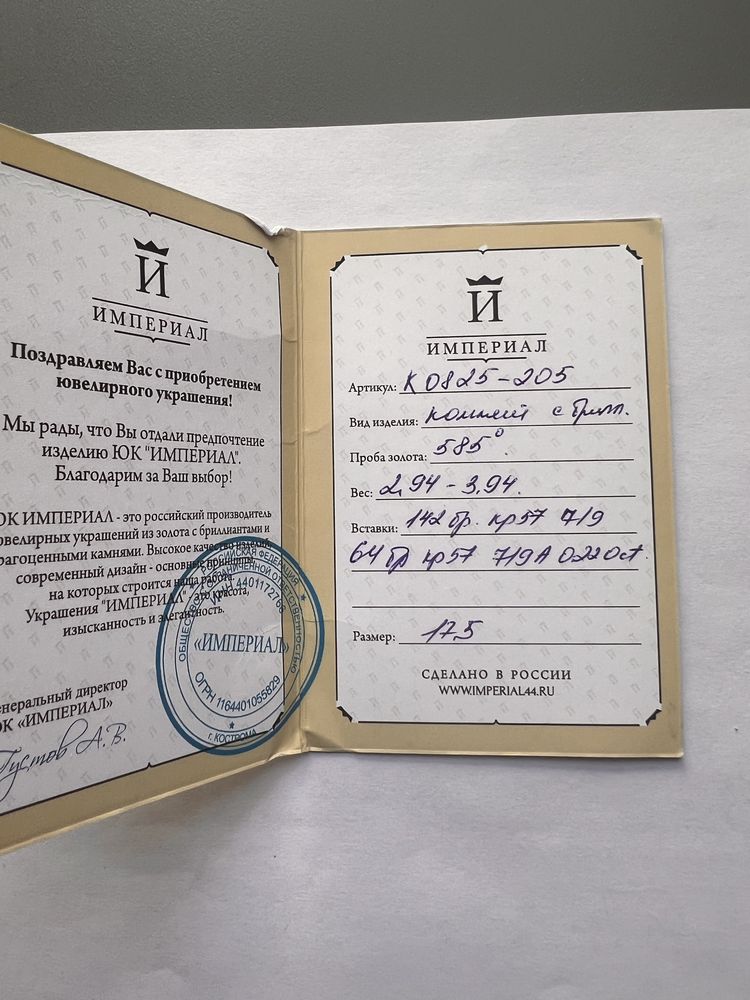 И
ИМПЕРИАЛ
Поздравляем Вас с приобретением
ювелирного украшения!
Мы рады, что Вы отдали предпочтение
изделию ЮК "ИМПЕРИАЛ".
Благодарим за Ваш выбор!
ЮК ИМПЕРИАЛ - это российский производитель
ювелирных украшений из золота с бриллиантами и
драгоценными камнями. Высокое качество изделий,
современный дизайн - основные принципы,
на которых строится наша работа.
Украшения "ИМПЕРИАЛ" - это красота,
изысканность и элегантность.
Генеральный директор
ЮК «ИМПЕРИАЛ»
Густов А.В.
РОССИЙСКАЯ ФЕДЕРАЦИЯ
ОБЩЕСТВО С ОГРАНИЧЕННОЙ ОТВЕТСТВЕННОСТЬЮ
ИНН 4401172766
«ИМПЕРИАЛ»
ОГРН 1164401055829
г. КОСТРОМА
И
ИМПЕРИАЛ
Артикул: К0825-205
Вид изделия: с брилл.
Проба золота: 585°
Вес: 2,94 - 3,94.
Вставки: 142 бр. кр57 7/9
64 бр кр57 7/9А 0,220ct.
Размер: 17,5
СДЕЛАНО В РОССИИ
WWW.IMPERIAL44.RU